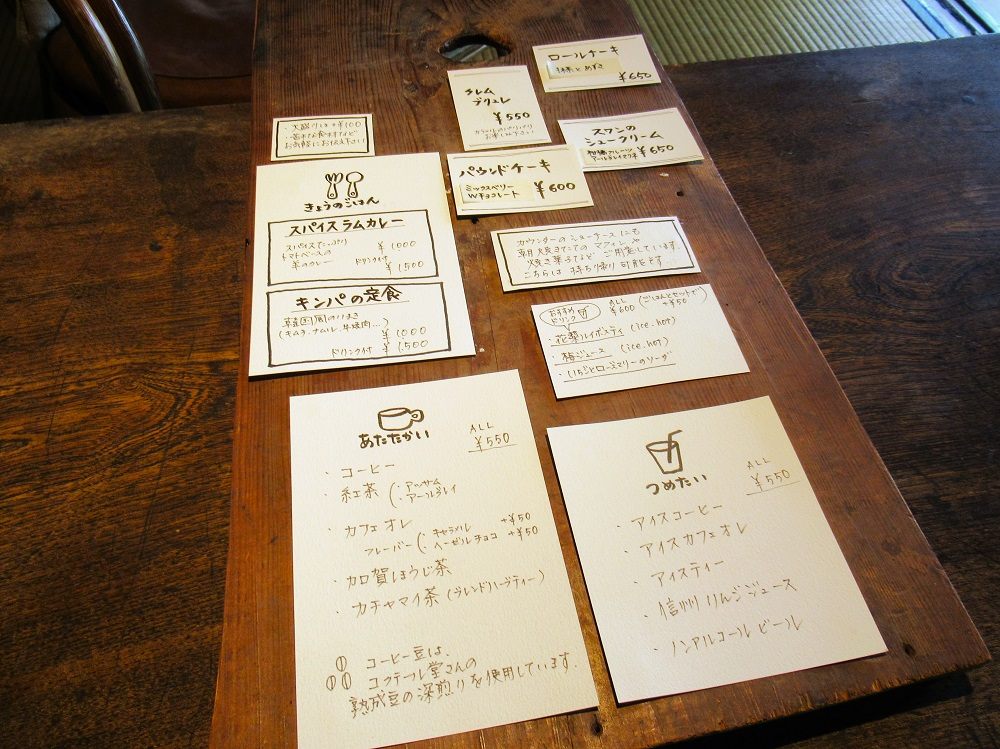 ロールケーキ
抹茶とあずき
¥650
クレム
ブリュレ
¥550
お楽しみ下さい
スワンの
シュークリーム
¥650
大盛り
+¥100
お気軽にお伝え下さい
パウンドケーキ
ミックスベリー
Wチョコレート
¥600
きょうのごはん
スパイスラムカレー
スパイスたっぷり
トマトベースの
羊のカレー
¥1,000
ドリンク付
¥1,500
キンパの定食
韓国風のりまき
(キムチ、ナムル、牛焼肉...)
¥1,000
ドリンク付 ¥1,500
カウンターのショーケースにも
朝焼きたてのマフィンや
焼き菓子など ご用意しています。
こちらは 持ち帰り可能です。
おすすめ
ドリンク
ALL
¥600
(ごはんとセットで
+¥50
・ルイボスティ (ice.hot)
・梅ジュース (ice.hot)
・いちごとローズマリーのソーダ
あたたかい
ALL
¥550
・コーヒー
・紅茶 (・アッサム
・アールグレイ
・カフェオレ
フレーバー (・キャラメル +¥50
・ヘーゼルチョコ +¥50
・加賀ほうじ茶
・カチャマイ茶 (ブレンドハーブティー)
コーヒー豆は、
コクテール堂さんの
熟成豆の深煎りを使用しています.
つめたい
ALL
¥550
・アイスコーヒー
・アイスカフェオレ
・アイスティー
・信州りんごジュース
・ノンアルコールビール